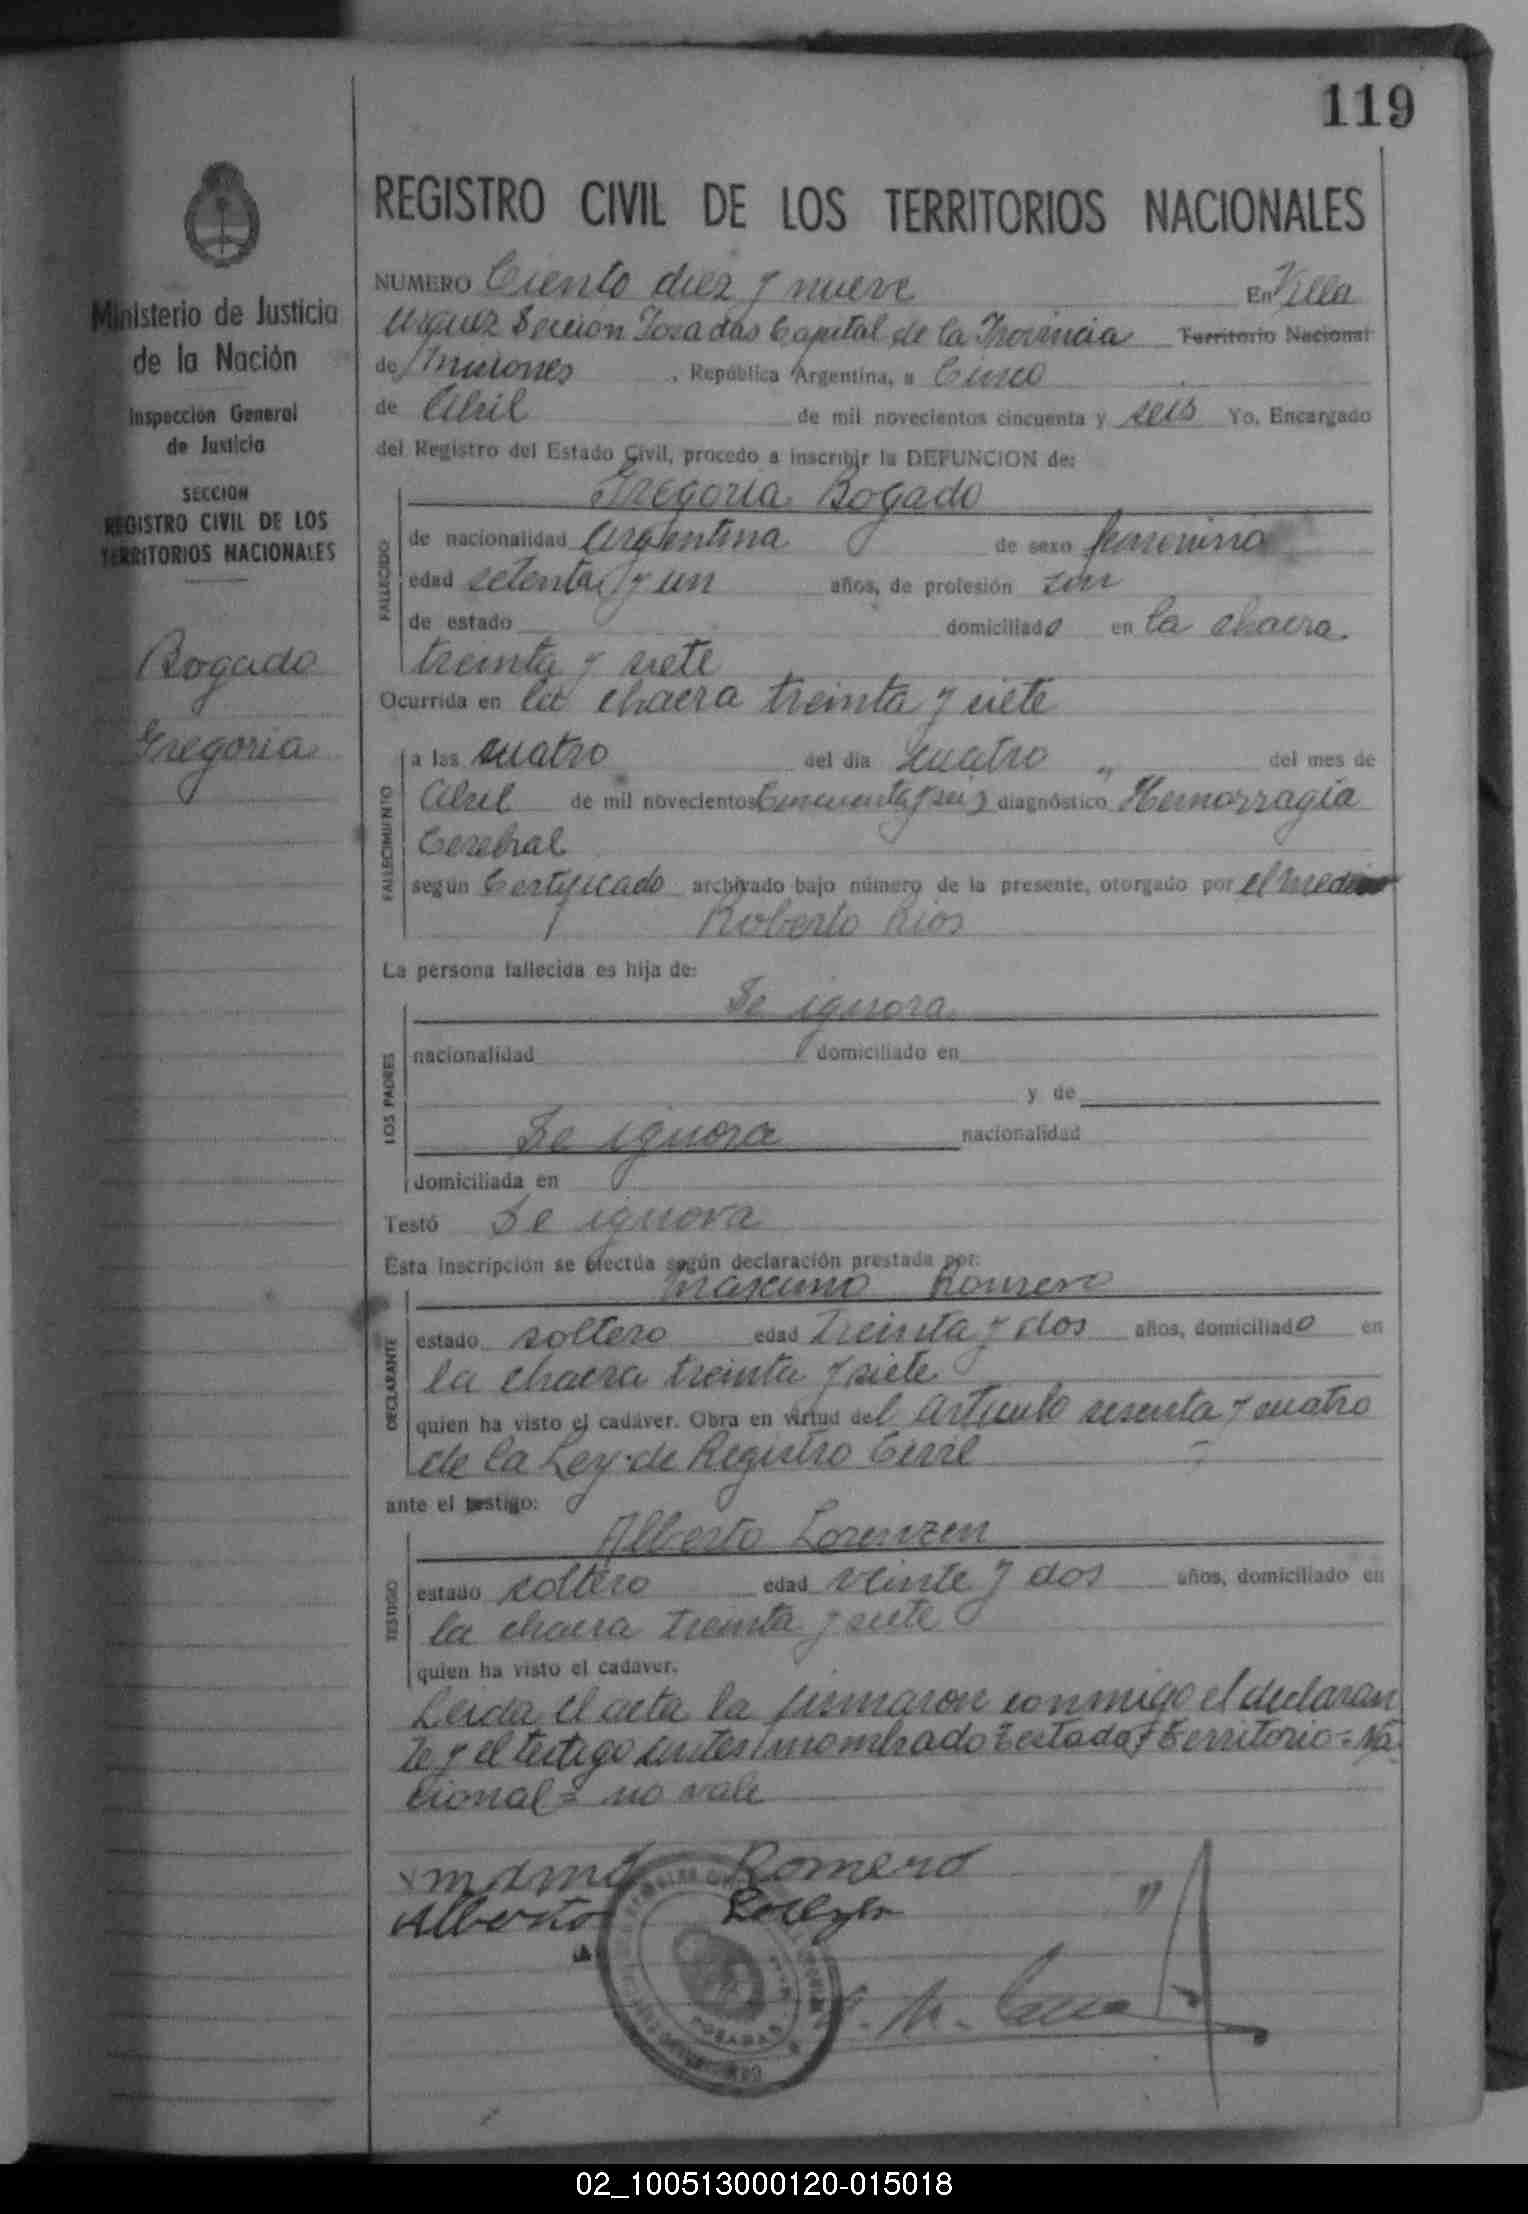 119
REGISTRO CIVIL DE LOS TERRITORIOS NACIONALES
Ministerio de Justicia
de la Nación
Inspección General
de Justicia
SECCION
REGISTRO CIVIL DE LOS
TERRITORIOS NACIONALES
Bogado
Gregoria
NUMERO Ciento diez y nueve En Villa
Urquiza Seccion Posadas Capital de la Provincia Territorio Nacional
de Misiones , República Argentina, a Cinco
de Abril de mil novecientos cincuenta y seis Yo, Encargado
del Registro del Estado Civil, procedo a inscribir la DEFUNCION de:
Gregoria Bogado
FALLECIDO
de nacionalidad argentina de sexo femenino
edad setenta y un años, de profesión
de estado domiciliado en la chacra
treinta y siete
Ocurrida en la chacra treinta y siete
FALLECIMIENTO
a las cuatro del día cuatro „ del mes de
Abril de mil novecientos Cincuenta y seis diagnóstico Hemorragia
Cerebral
según Certificado archivado bajo número de la presente, otorgado por el medico
Roberto Rios
La persona fallecida es hija de:
Se ignora
LOS PADRES
nacionalidad domiciliado en
y de
Se ignora nacionalidad
domiciliada en
Testó Se ignora
Esta inscripción se efectúa según declaración prestada por:
Maximo Romero
DECLARANTE
estado soltero edad Treinta y dos años, domiciliado en
la chacra treinta y siete
quien ha visto el cadáver. Obra en virtud del Articulo sesenta y cuatro
de la Ley de Registro Civil
ante el testigo:
Alberto Lorenzen
TESTIGO
estado soltero edad veinte y dos años, domiciliado en
la chacra treinta y siete
quien ha visto el cadáver.
Leida el acta la firmaron conmigo el declaran
te y el testigo antes nombrado Testado: Territorio = Na
cional = no vale
Romero
Alberto
POSADAS
02_100513000120-015018